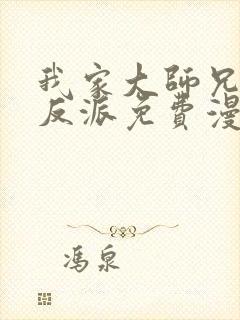 我家大师兄
反派免費漫
冯泉